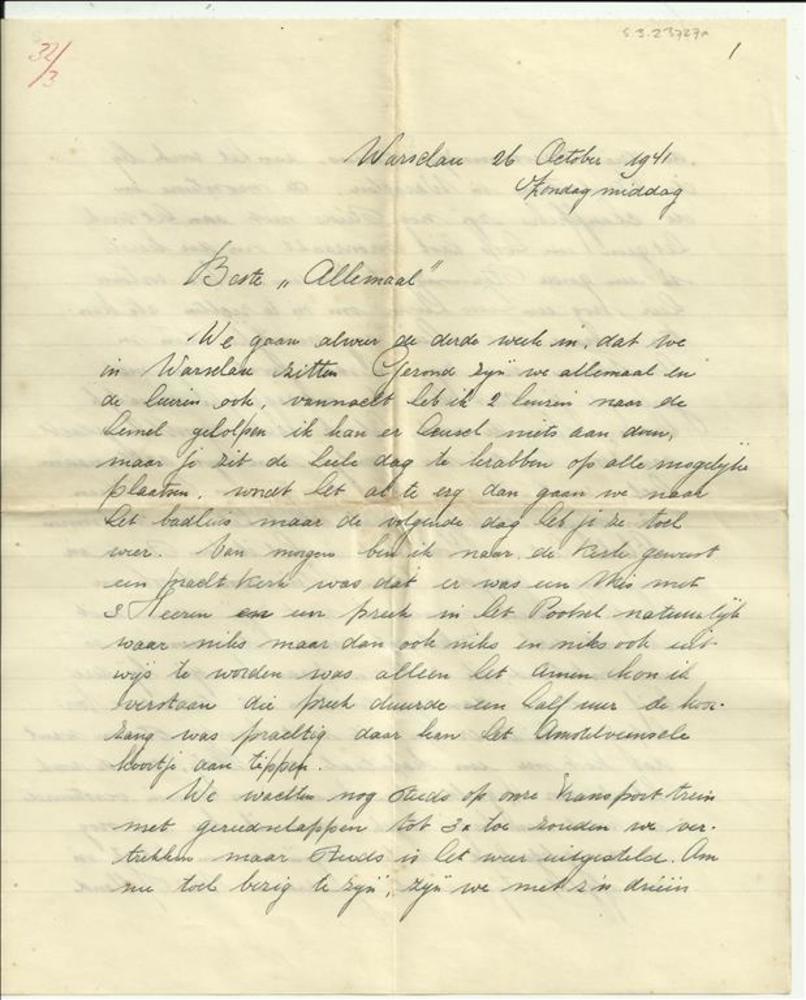 32/3
S.3.23727A
1
Warschau 26 October 1941
Zondag middag
Beste „Allemaal"
We gaan alweer de derde week in, dat we
in Warschau zitten Gezond zijn we allemaal en
de luizen ook, vannacht heb ik 2 luizen naar de
hemel geholpen ik kan er heusch niets aan doen,
maar je zit de heele dag te krabben op alle mogelijke
plaatsen, wordt het al te erg dan gaan we naar
het badhuis maar de volgende dag heb je ze toch
weer. Van morgen ben ik naar de Kerk geweest
een pracht Kerk was dat er was een Mis met
3 Heeren en een preek in het Poolsch natuurlijk
waar niks maar dan ook niks en niks ook uit
wijs te worden was alleen het Amen kon ik
verstaan die preek duurde een half uur de koor-
zang was prachtig daar kan het Amstelveensche
koortje aan tippen.
We wachten nog steeds op onze Transport trein
met gereedschappen tot 3x toe zouden we ver-
trekken maar steeds is het weer uitgesteld. Om
nu toch bezig te zijn, zijn we met z'n drieën